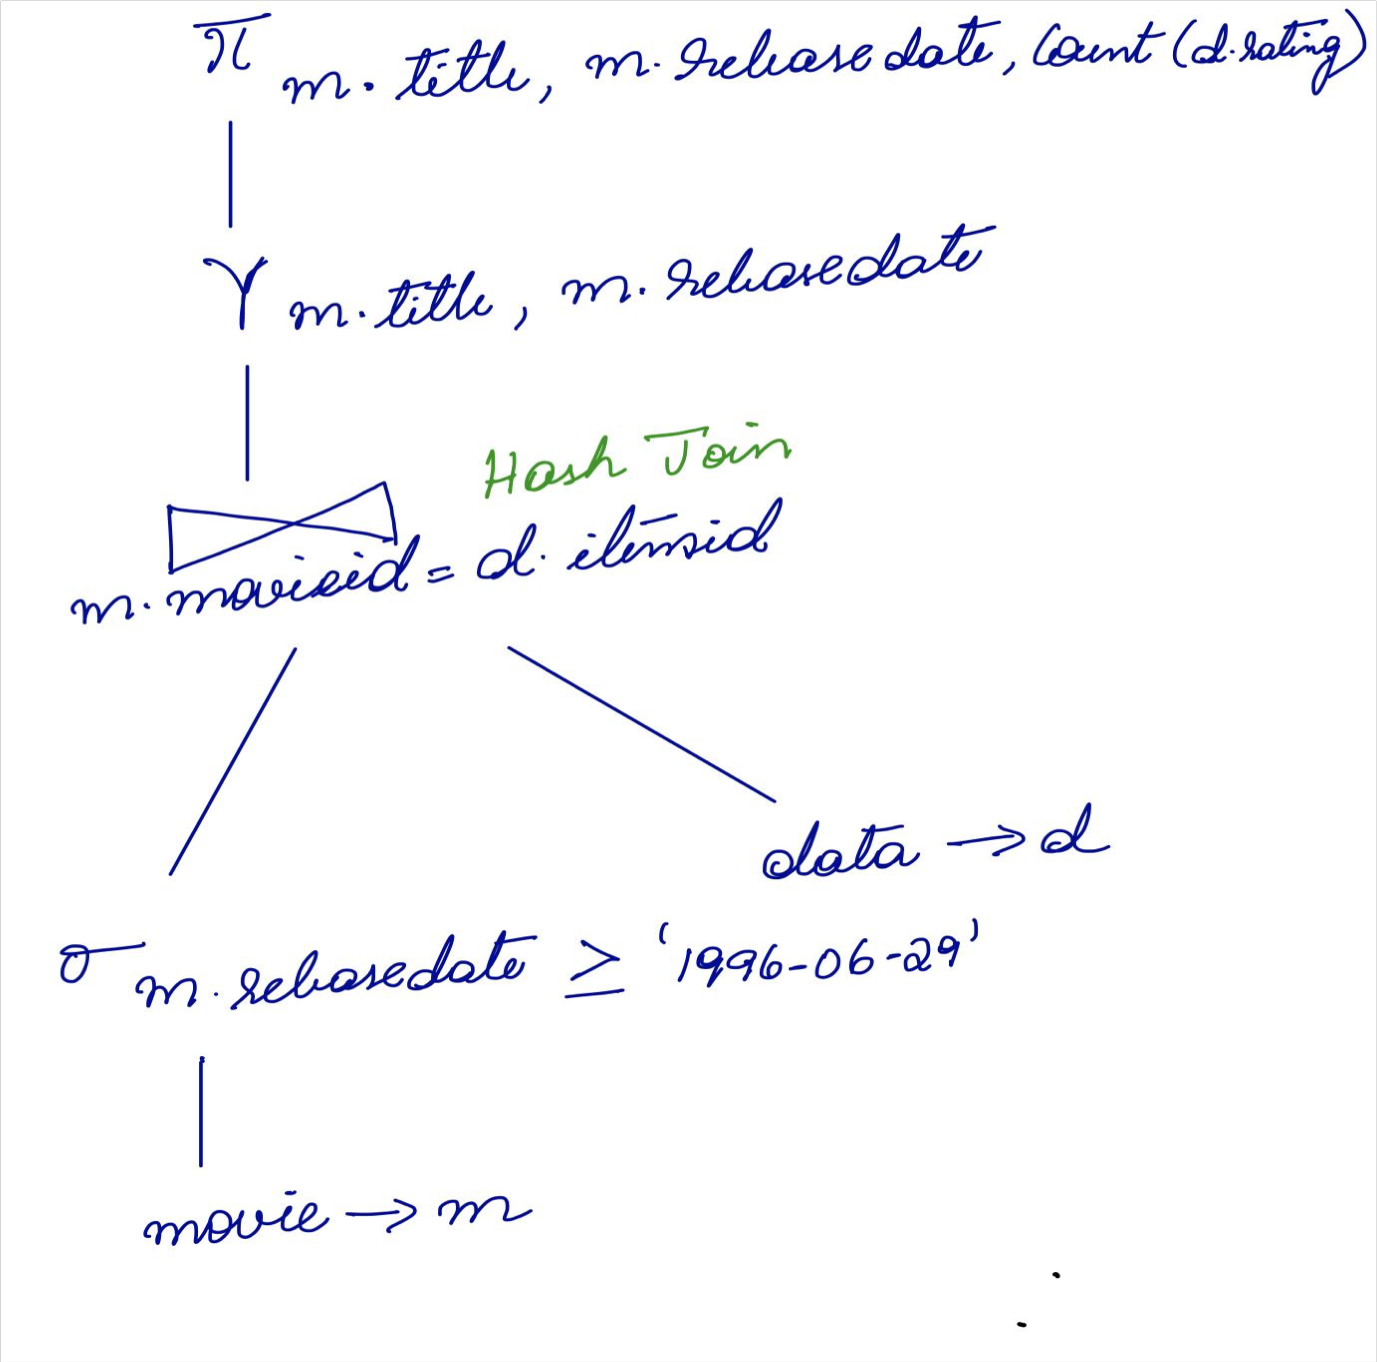 π m.title, m.releasedate, Count (d.rating)
γ m.title, m.releasedate
Hash Join
⋈ m.movieid = d.itemid
data → d
σ m.releasedate ≥ '1996-06-29'
movie → m